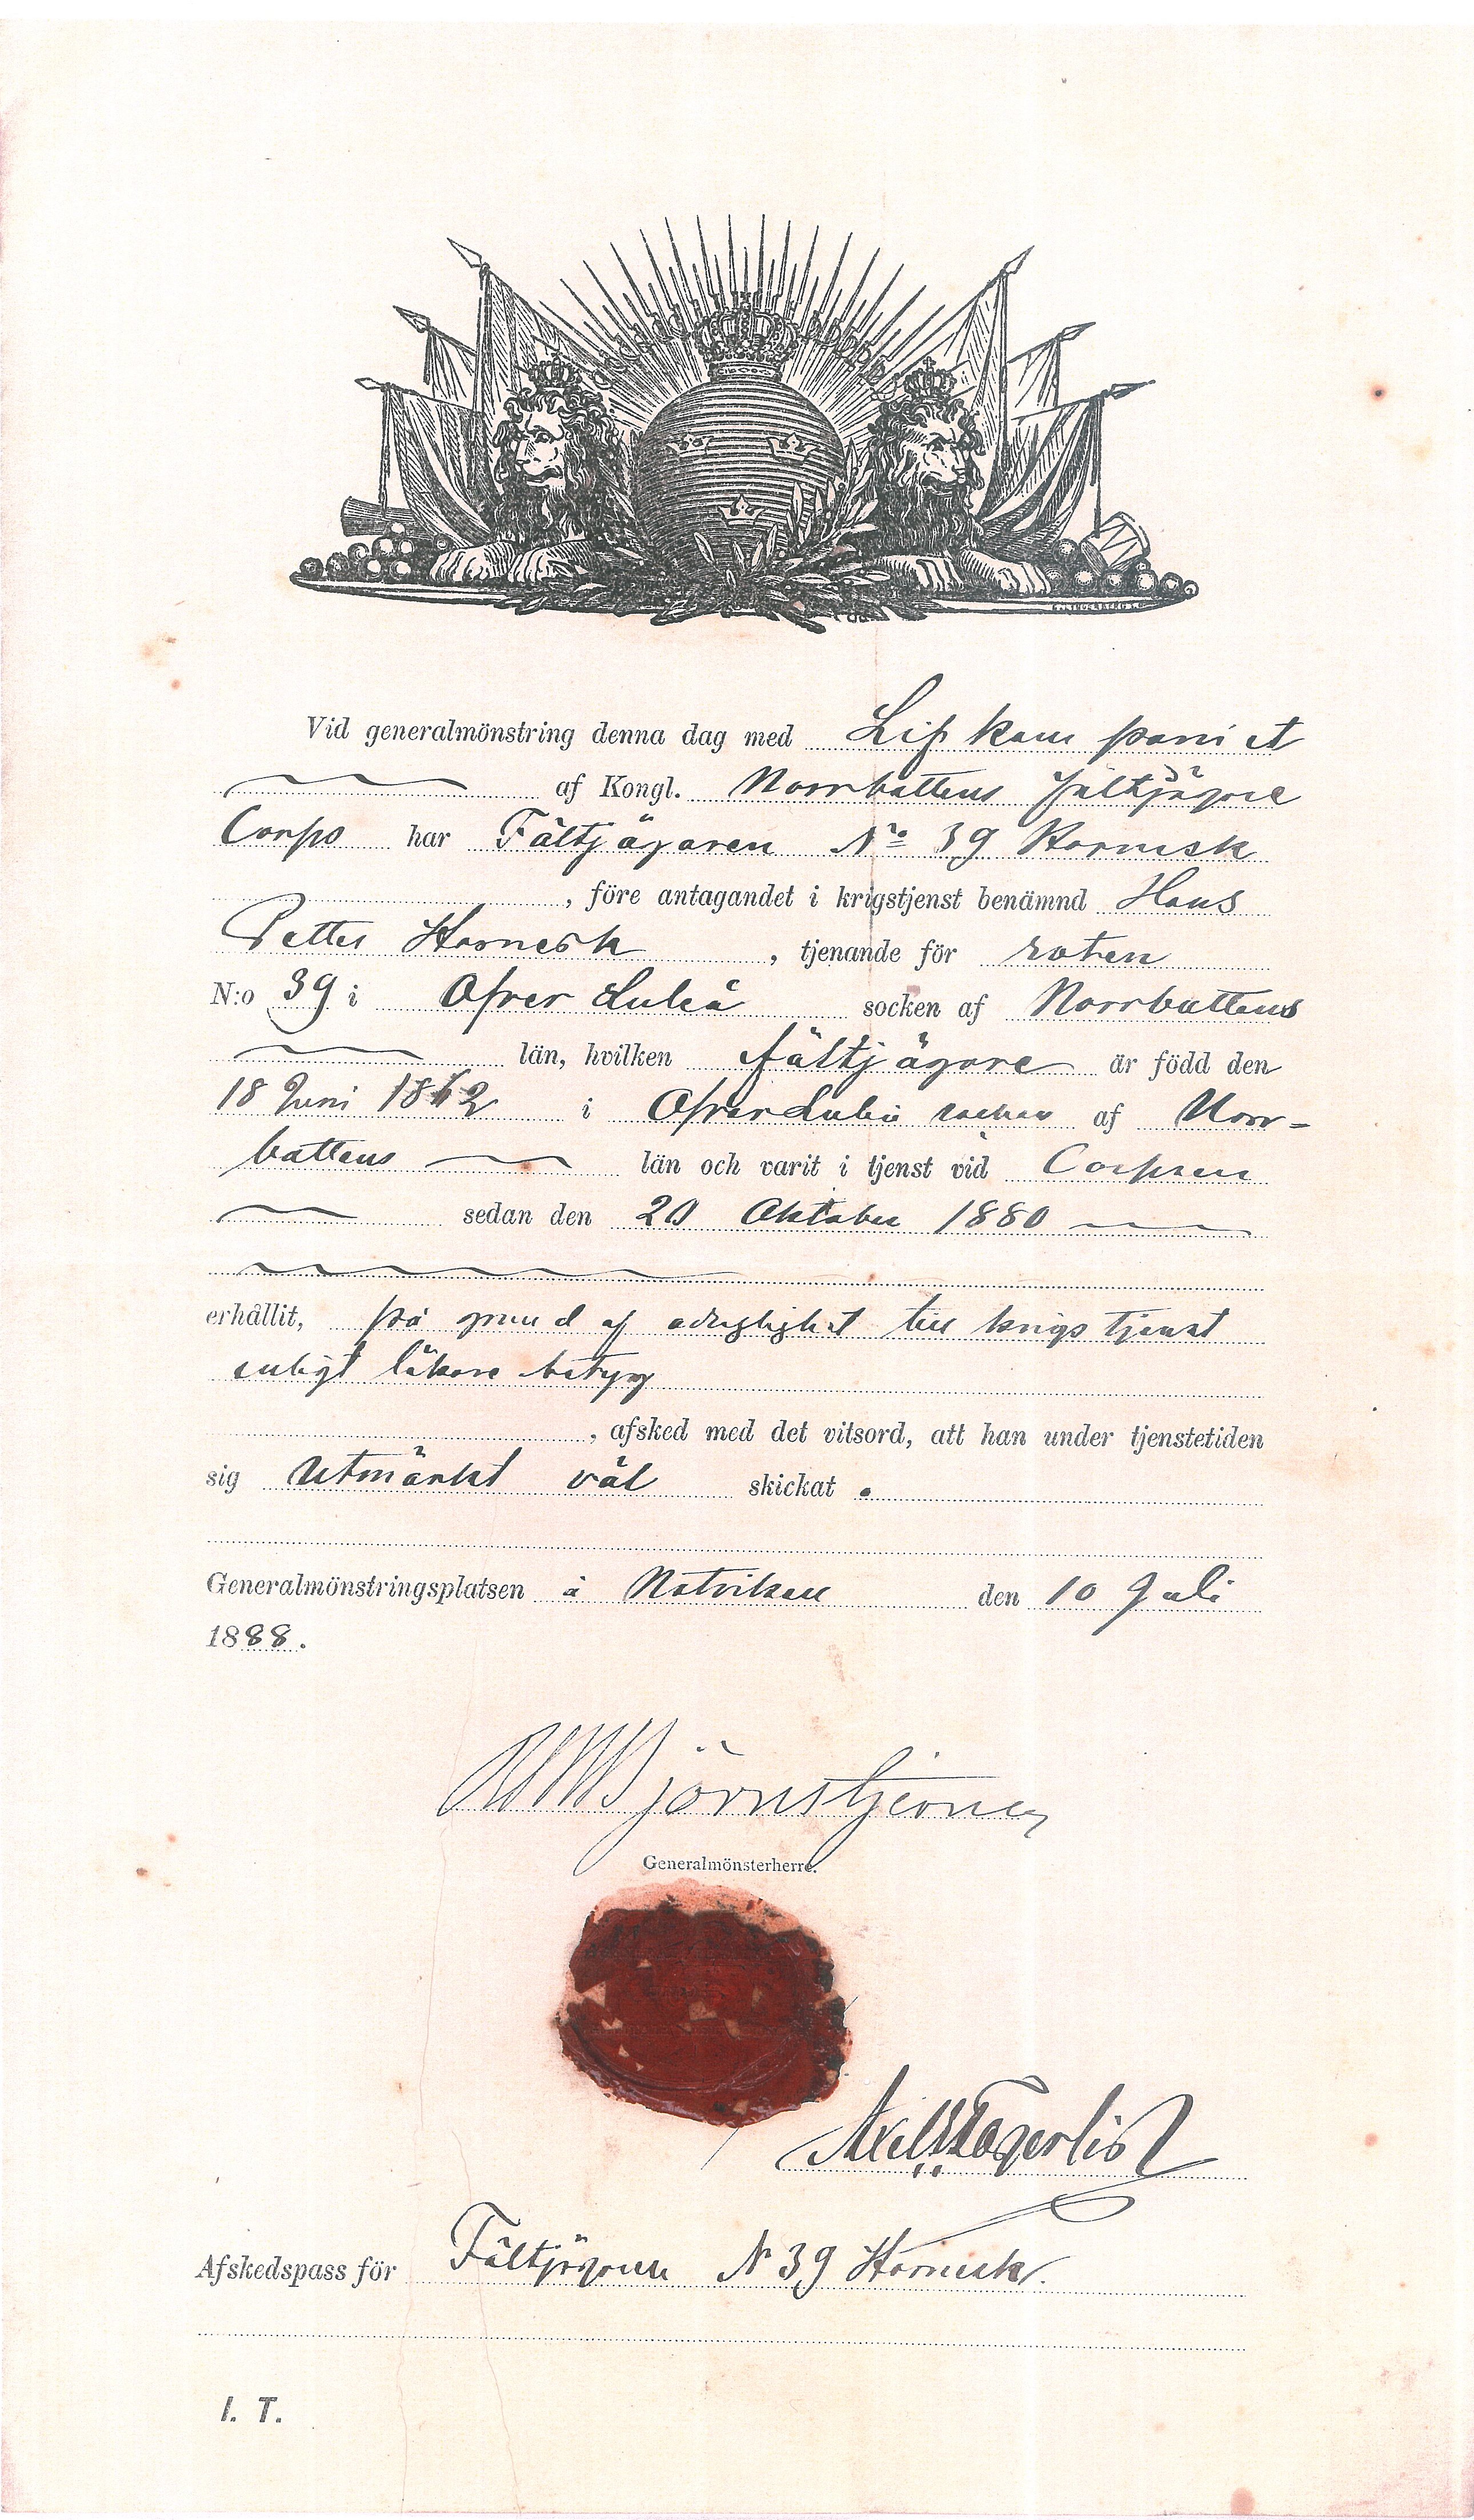 Vid generalmönstring denna dag med Lifkompaniet
af Kongl. Norrbottens Fältjägare
Corps har Fältjägaren No 39 Hornesk
, före antagandet i krigstjenst benämnd Hans
Petter Hornesk, tjenande för roten
N:o 39 i Öfver Luleå socken af Norrbottens
län, hvilken fältjägare är född den
18 Juni 1862 i Öfver Luleå socken af Norr-
bottens län och varit i tjenst vid Corpsen
sedan den 20 Oktober 1880
erhållit, på grund af oduglighet till krigstjenst
enligt läkare betyg
, afsked med det vitsord, att han under tjenstetiden
sig Utmärkt väl skickat.
Generalmönstringsplatsen å Notviken den 10 Juli
1888.
Björnstjerna
Generalmönsterherre.
Axel
Afskedspass för Fältjägaren N 39 Hornesk.
I. T.